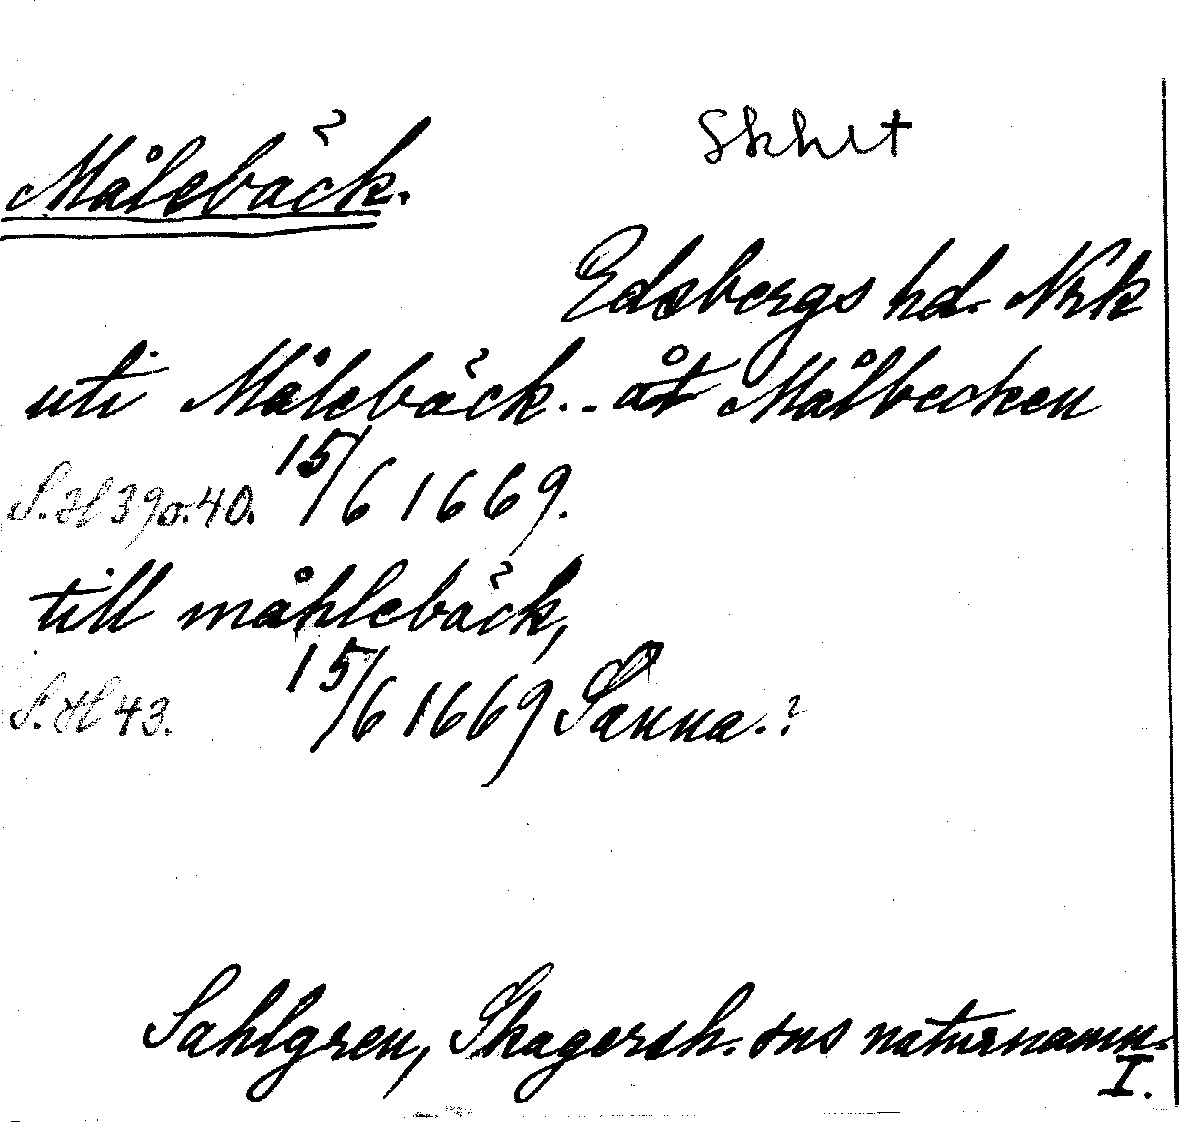 Målebäck. Skhlt
Edsbergs hd. Nrk
uti Målebäck... åt Målbecken
S. H 39 o. 40. 15/6 1669.
till måhlebäck,
S. H 43. 15/6 1669 Sanna.?
Sahlgren, Skagersh. sns naturnamn.
I.